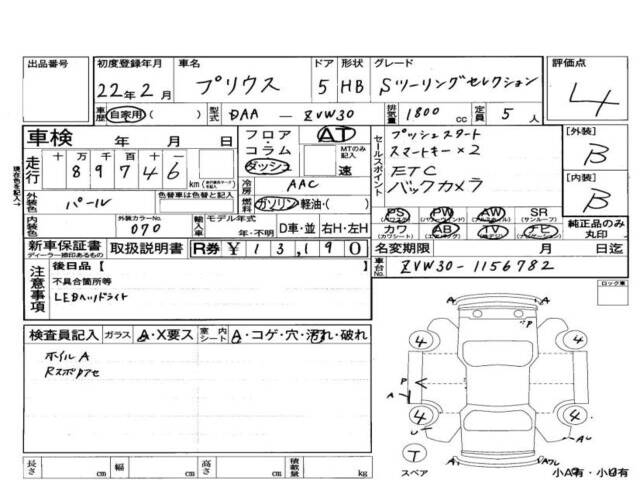 出品番号
初度登録年月 車名 ドア 形状 グレード 評価点
22年2月 プリウス 5 HB Sツーリングセレクション 4
車歴 自家用( ) 型式 DAA - ZVW30 排気量 1800 cc 定員 5 人
車検 年 月 日
フロア・コラム・ダッシュ AT MTのみ記入 速
走行 十 万 千 百 十 一
8 9 7 4 6 km
冷房 AAC
外装色 パール 色替車は色替と記入
燃料 ガソリン 軽油・( )
現在色を記入→
内装色 外装カラーNo. 070 輸入車 モデル年式 年・不明 D車・並 右H・左H
セールスポイント
プッシュスタート
スマートキー×2
ETC
バックカメラ
[外装]
B
[内装]
B
PS PW AW SR
(パワステ) (パワーウィンド) (サンルーフ)
カワ AB TV ナビ
(カワシート) (エアバック)
純正品のみ丸印
新車保証書 取扱説明書 R券 ¥13,190
ディーラー捺印あるもの
名変期限 月 日迄
車台No. ZVW30-1156782
注意事項
後日品【
不具合箇所等
LEDヘッドライト
ロック車
検査員記入 ガラス A・X要ス 室内シート A・コゲ・穴・汚れ・破れ
ホイルA
RスポUアセ
A A
P
4 4
P
A
4 4
U AU
T
スペア
A Aワレ
小A有・小U有
長さ cm 幅 cm 高さ cm 積載量 kg